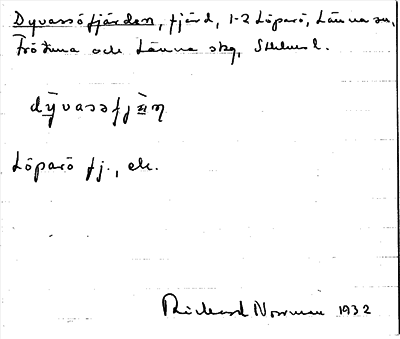 Dyvassöfjärden, fjärd, 1-2 Löparö, Länna sn,
Frötuna och Länna skg, Sthlms l.
dy̅vassfjæ̀ɳ
Löparö fj., etc.
Rickard Norrman 1932